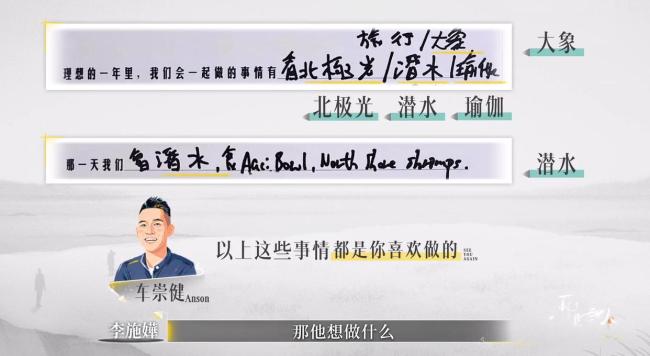 旅行/大象
大象
理想的一年里，我们会一起做的事情有 看北極光/潛水/瑜伽
北极光 潜水 瑜伽
那一天我们 會潛水,食Acai Bowl, North Shore shrimps.
潜水
以上这些事情都是你喜欢做的 SEE YOU AGAIN
车崇健Anson
李施嬅 那他想做什么